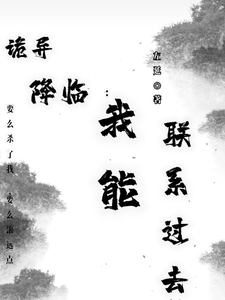 诡异
降临：
我能
联系过去
著
要么杀了我 要么滚远点